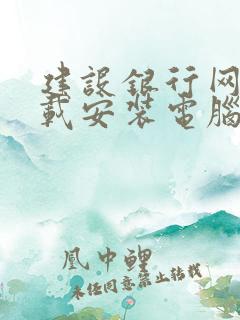 建設銀行网
載安装電腦
凰中鯉
未经同意禁止转载